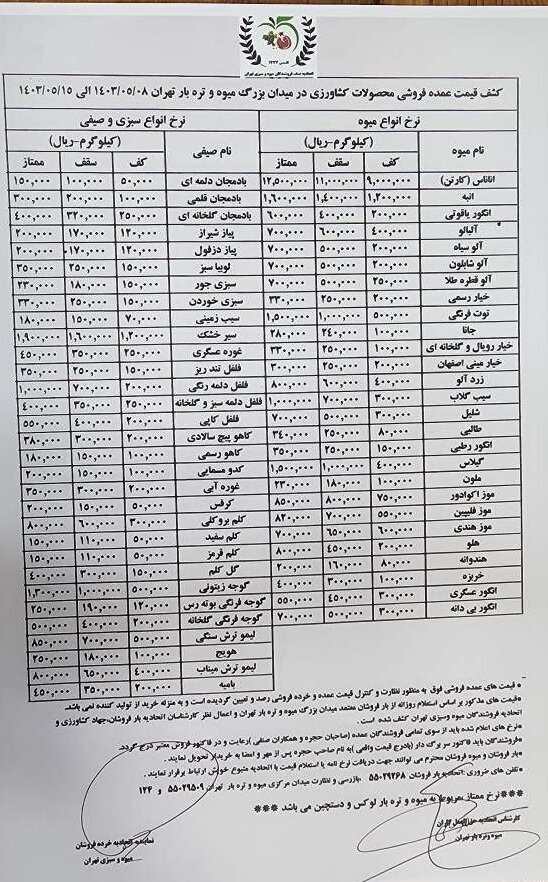 اتحادیه صنف فروشندگان میوه و سبزی تهران
کشف قیمت عمده فروشی محصولات کشاورزی در میدان بزرگ میوه و تره بار تهران ۱۴۰۳/۰۵/۰۸ الی ۱۴۰۳/۰۵/۱۵
نرخ انواع میوه
نام میوه (کیلوگرم-ریال)
کف سقف ممتاز
اناناس (کارتن) ۹,۰۰۰,۰۰۰ ۱۱,۰۰۰,۰۰۰ ۱۲,۵۰۰,۰۰۰
انبه ۱,۲۰۰,۰۰۰ ۱,۴۰۰,۰۰۰ ۱,۶۰۰,۰۰۰
انگور یاقوتی ۲۰۰,۰۰۰ ۴۰۰,۰۰۰ ۶۰۰,۰۰۰
آلبالو ۴۰۰,۰۰۰ ۶۰۰,۰۰۰ ۷۰۰,۰۰۰
آلو سیاه ۲۰۰,۰۰۰ ۵۰۰,۰۰۰ ۷۰۰,۰۰۰
آلو شابلون ۲۰۰,۰۰۰ ۵۰۰,۰۰۰ ۷۰۰,۰۰۰
آلو قطره طلا ۲۵۰,۰۰۰ ۵۰۰,۰۰۰ ۷۰۰,۰۰۰
خیار رسمی ۲۰۰,۰۰۰ ۲۵۰,۰۰۰ ۳۳۰,۰۰۰
توت فرنگی ۵۰۰,۰۰۰ ۱,۰۰۰,۰۰۰ ۱,۵۰۰,۰۰۰
جانا ۱۰۰,۰۰۰ ۲۴۰,۰۰۰ ۲۸۰,۰۰۰
خیار رویال و گلخانه ای ۱۰۰,۰۰۰ ۲۵۰,۰۰۰ ۳۳۰,۰۰۰
خیار مینی اصفهان ۲۰۰,۰۰۰ ۲۵۰,۰۰۰ ۳۰۰,۰۰۰
زرد آلو ۴۰۰,۰۰۰ ۶۰۰,۰۰۰ ۸۰۰,۰۰۰
سیب گلاب ۳۰۰,۰۰۰ ۷۰۰,۰۰۰ ۱,۰۰۰,۰۰۰
شلیل ۳۰۰,۰۰۰ ۵۰۰,۰۰۰ ۷۰۰,۰۰۰
طالبی ۸۰,۰۰۰ ۲۵۰,۰۰۰ ۳۴۰,۰۰۰
انگور رطبی ۱۵۰,۰۰۰ ۲۵۰,۰۰۰ ۳۵۰,۰۰۰
گیلاس ۴۰۰,۰۰۰ ۱,۰۰۰,۰۰۰ ۱,۵۰۰,۰۰۰
ملون ۱۰۰,۰۰۰ ۱۸۰,۰۰۰ ۲۳۰,۰۰۰
موز اکوادور ۷۵۰,۰۰۰ ۸۰۰,۰۰۰ ۸۵۰,۰۰۰
موز فلیپین ۵۵۰,۰۰۰ ۷۰۰,۰۰۰ ۸۲۰,۰۰۰
موز هندی ۶۰۰,۰۰۰ ۶۵۰,۰۰۰ ۷۰۰,۰۰۰
هلو ۲۰۰,۰۰۰ ۴۵۰,۰۰۰ ۸۰۰,۰۰۰
هندوانه ۸۰,۰۰۰ ۱۶۰,۰۰۰ ۲۰۰,۰۰۰
خربزه ۱۰۰,۰۰۰ ۳۰۰,۰۰۰ ۴۰۰,۰۰۰
انگور عسگری ۳۰۰,۰۰۰ ۴۵۰,۰۰۰ ۵۵۰,۰۰۰
انگور بی دانه ۳۰۰,۰۰۰ ۵۰۰,۰۰۰ ۷۰۰,۰۰۰
نرخ انواع سبزی و صیفی
نام صیفی (کیلوگرم-ریال)
کف سقف ممتاز
بادمجان دلمه ای ۵۰,۰۰۰ ۱۰۰,۰۰۰ ۱۵۰,۰۰۰
بادمجان قلمی ۱۰۰,۰۰۰ ۲۰۰,۰۰۰ ۳۰۰,۰۰۰
بادمجان گلخانه ای ۲۵۰,۰۰۰ ۳۲۰,۰۰۰ ۴۰۰,۰۰۰
پیاز شیراز ۱۲۰,۰۰۰ ۱۷۰,۰۰۰ ۲۰۰,۰۰۰
پیاز دزفول ۱۲۰,۰۰۰ ۱۷۰,۰۰۰ ۲۰۰,۰۰۰
لوبیا سبز ۱۵۰,۰۰۰ ۲۵۰,۰۰۰ ۳۵۰,۰۰۰
سبزی جور ۱۵۰,۰۰۰ ۱۸۰,۰۰۰ ۲۳۰,۰۰۰
سبزی خوردن ۱۵۰,۰۰۰ ۲۵۰,۰۰۰ ۳۳۰,۰۰۰
سیب زمینی ۷۰,۰۰۰ ۱۵۰,۰۰۰ ۱۸۰,۰۰۰
سیر خشک ۱,۲۰۰,۰۰۰ ۱,۶۰۰,۰۰۰ ۱,۹۰۰,۰۰۰
غوره عسگری ۲۵۰,۰۰۰ ۳۵۰,۰۰۰ ۴۵۰,۰۰۰
فلفل تند ریز ۱۵۰,۰۰۰ ۲۵۰,۰۰۰ ۳۵۰,۰۰۰
فلفل دلمه رنگی ۲۰۰,۰۰۰ ۷۰۰,۰۰۰ ۱,۰۰۰,۰۰۰
فلفل دلمه سبز و گلخانه ۲۵۰,۰۰۰ ۳۵۰,۰۰۰ ۴۰۰,۰۰۰
فلفل کاپی ۲۰۰,۰۰۰ ۴۰۰,۰۰۰ ۵۵۰,۰۰۰
کاهو پیچ سالادی ۲۰۰,۰۰۰ ۳۰۰,۰۰۰ ۳۸۰,۰۰۰
کاهو رسمی ۱۰۰,۰۰۰ ۱۵۰,۰۰۰ ۱۸۰,۰۰۰
کدو مسمایی ۱۰۰,۰۰۰ ۱۵۰,۰۰۰ ۲۰۰,۰۰۰
غوره آبی ۲۰۰,۰۰۰ ۳۰۰,۰۰۰ ۳۵۰,۰۰۰
کرفس ۵۰,۰۰۰ ۱۵۰,۰۰۰ ۲۰۰,۰۰۰
کلم بروکلی ۳۰۰,۰۰۰ ۶۰۰,۰۰۰ ۸۰۰,۰۰۰
کلم سفید ۵۰,۰۰۰ ۱۱۰,۰۰۰ ۱۵۰,۰۰۰
کلم قرمز ۵۰,۰۰۰ ۱۱۰,۰۰۰ ۱۵۰,۰۰۰
گل کلم ۱۵۰,۰۰۰ ۳۰۰,۰۰۰ ۴۰۰,۰۰۰
گوجه زیتونی ۵۰۰,۰۰۰ ۱,۰۰۰,۰۰۰ ۱,۳۰۰,۰۰۰
گوجه فرنگی بوته رس ۱۲۰,۰۰۰ ۱۹۰,۰۰۰ ۲۵۰,۰۰۰
گوجه فرنگی گلخانه ۲۰۰,۰۰۰ ۴۰۰,۰۰۰ ۵۰۰,۰۰۰
لیمو ترش سنگی ۵۰۰,۰۰۰ ۷۰۰,۰۰۰ ۸۵۰,۰۰۰
هویج ۱۰۰,۰۰۰ ۱۸۰,۰۰۰ ۲۵۰,۰۰۰
لیمو ترش میناب ۴۰۰,۰۰۰ ۶۵۰,۰۰۰ ۸۰۰,۰۰۰
بامیه ۲۰۰,۰۰۰ ۳۵۰,۰۰۰ ۴۵۰,۰۰۰
* قیمت های عمده فروشی فوق به منظور نظارت و کنترل قیمت عمده و خرده فروشی رصد و تعیین گردیده است و به منزله خرید از تولید کننده نمی باشد.
* قیمت های مذکور بر اساس استعلام روزانه از بار فروشان معتمد میدان بزرگ میوه و تره بار تهران و اعمال نظر کارشناسان اتحادیه بار فروشان، جهاد کشاورزی و
اتحادیه فروشندگان میوه وسبزی تهران کشف شده است .
* نرخ های اعلام شده باید از سوی تمامی فروشندگان عمده (صاحبان حجره و همکاران صنفی) رعایت و در فاکتور فروش معتبر درج گردد.
* فروشندگان باید فاکتور سر برگ دار (بادرج قیمت واقعی) به نام صاحب حجره پس از مهر و امضا به خریدار تحویل نمایند .
* بار فروشان و میوه فروشان محترم می توانند جهت دریافت نرخ نامه یا استعلام قیمت با اتحادیه متبوع خویش ارتباط برقرار نمایند .
* تلفن های ضروری : اتحادیه بار فروشان ۵۵۰۲۹۲۶۸ ، بازرسی و نظارت میدان مرکزی میوه و تره بار تهران ۵۵۰۲۹۵۰۹ و ۱۲۴
***نرخ ممتاز مربوط به میوه و تره بار لوکس و دستچین می باشد ***
کارشناس اتحادیه
میوه و تره بار تهران
نماینده اتحادیه خرده فروشان
میوه و سبزی تهران